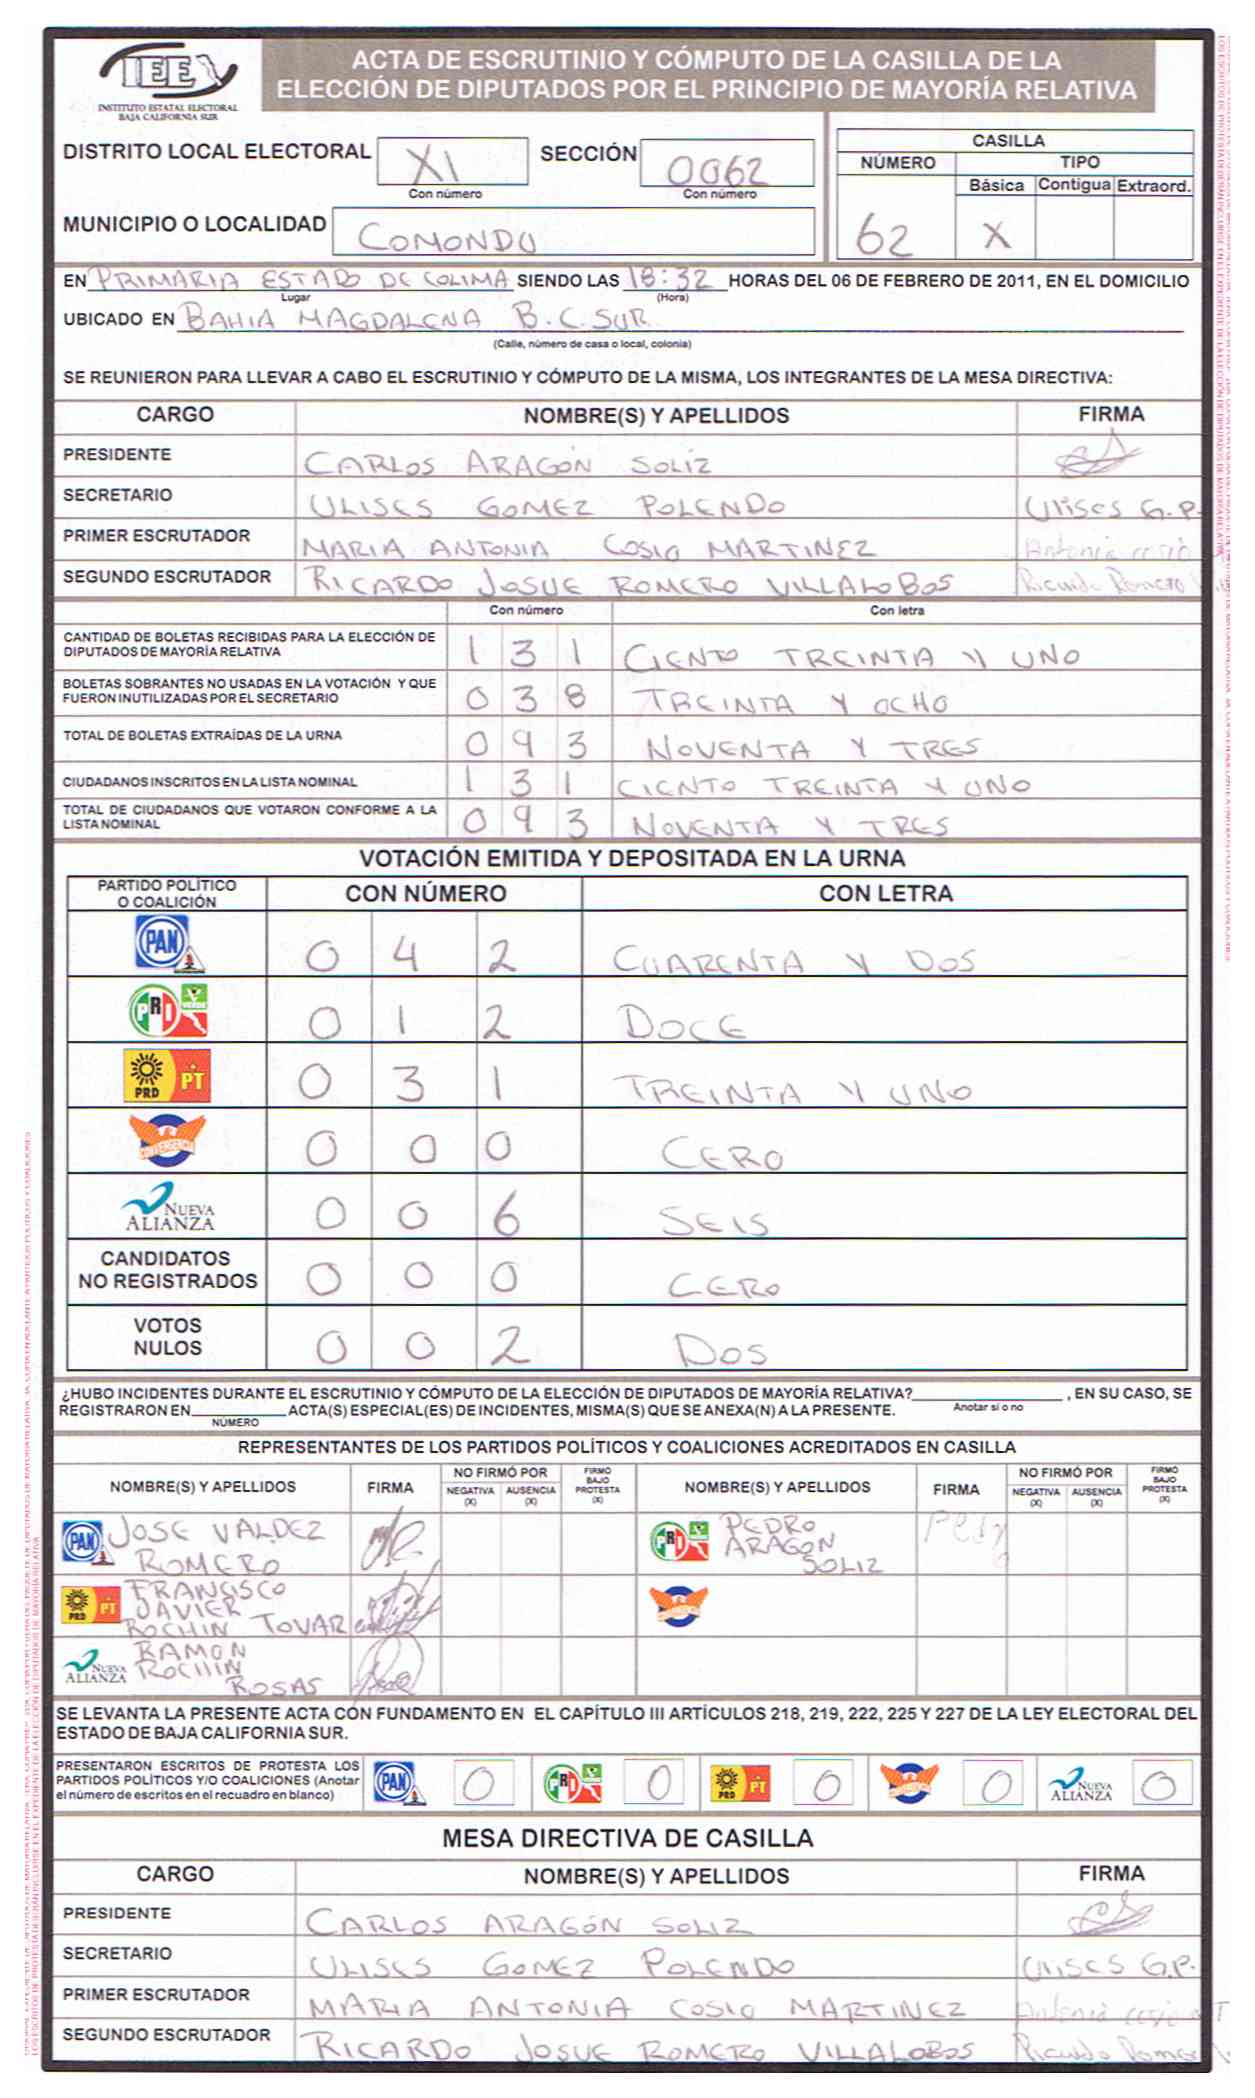 IEEX
INSTITUTO ESTATAL ELECTORAL
BAJA CALIFORNIA SUR
ACTA DE ESCRUTINIO Y CÓMPUTO DE LA CASILLA DE LA
ELECCIÓN DE DIPUTADOS POR EL PRINCIPIO DE MAYORÍA RELATIVA
DISTRITO LOCAL ELECTORAL XI SECCIÓN 0062
Con número Con número
MUNICIPIO O LOCALIDAD COMONDU
CASILLA
NÚMERO TIPO
Básica Contigua Extraord.
62 X
EN PRIMARIA ESTADO DE COLIMA SIENDO LAS 18:32 HORAS DEL 06 DE FEBRERO DE 2011, EN EL DOMICILIO
Lugar (Hora)
UBICADO EN BAHIA MAGDALENA B.C.SUR.
(Calle, número de casa o local, colonia)
SE REUNIERON PARA LLEVAR A CABO EL ESCRUTINIO Y CÓMPUTO DE LA MISMA, LOS INTEGRANTES DE LA MESA DIRECTIVA:
CARGO NOMBRE(S) Y APELLIDOS FIRMA
PRESIDENTE CARLOS ARAGÓN SOLIZ
SECRETARIO ULISES GOMEZ POLENDO Ulises G.P.
PRIMER ESCRUTADOR MARIA ANTONIA COSIO MARTINEZ Antonia cosio
SEGUNDO ESCRUTADOR RICARDO JOSUE ROMERO VILLALOBOS Ricardo Romero
Con número Con letra
CANTIDAD DE BOLETAS RECIBIDAS PARA LA ELECCIÓN DE
DIPUTADOS DE MAYORÍA RELATIVA 1 3 1 CIENTO TREINTA Y UNO
BOLETAS SOBRANTES NO USADAS EN LA VOTACIÓN Y QUE
FUERON INUTILIZADAS POR EL SECRETARIO 0 3 8 TREINTA Y OCHO
TOTAL DE BOLETAS EXTRAÍDAS DE LA URNA 0 9 3 NOVENTA Y TRES
CIUDADANOS INSCRITOS EN LA LISTA NOMINAL 1 3 1 CIENTO TREINTA Y UNO
TOTAL DE CIUDADANOS QUE VOTARON CONFORME A LA
LISTA NOMINAL 0 9 3 NOVENTA Y TRES
VOTACIÓN EMITIDA Y DEPOSITADA EN LA URNA
PARTIDO POLÍTICO
O COALICIÓN CON NÚMERO CON LETRA
PAN 0 4 2 CUARENTA Y DOS
PRI VERDE 0 1 2 DOCE
PRD PT 0 3 1 TREINTA Y UNO
CONVERGENCIA 0 0 0 CERO
NUEVA ALIANZA 0 0 6 SEIS
CANDIDATOS
NO REGISTRADOS 0 0 0 CERO
VOTOS
NULOS 0 0 2 DOS
¿HUBO INCIDENTES DURANTE EL ESCRUTINIO Y CÓMPUTO DE LA ELECCIÓN DE DIPUTADOS DE MAYORÍA RELATIVA? , EN SU CASO, SE
Anotar si o no
REGISTRARON EN ACTA(S) ESPECIAL(ES) DE INCIDENTES, MISMA(S) QUE SE ANEXA(N) A LA PRESENTE.
NÚMERO
REPRESENTANTES DE LOS PARTIDOS POLÍTICOS Y COALICIONES ACREDITADOS EN CASILLA
NOMBRE(S) Y APELLIDOS FIRMA NO FIRMÓ POR NEGATIVA (X) AUSENCIA (X) FIRMÓ BAJO PROTESTA (X) NOMBRE(S) Y APELLIDOS FIRMA NO FIRMÓ POR NEGATIVA (X) AUSENCIA (X) FIRMÓ BAJO PROTESTA (X)
PAN JOSE VALDEZ
ROMERO
PRI VERDE PEDRO
ARAGON
SOLIZ Pedro
PRD PT FRANCISCO
JAVIER
ROCHIN TOVAR
CONVERGENCIA
NUEVA ALIANZA RAMON
ROCHIN
ROSAS
SE LEVANTA LA PRESENTE ACTA CON FUNDAMENTO EN EL CAPÍTULO III ARTÍCULOS 218, 219, 222, 225 Y 227 DE LA LEY ELECTORAL DEL
ESTADO DE BAJA CALIFORNIA SUR.
PRESENTARON ESCRITOS DE PROTESTA LOS
PARTIDOS POLÍTICOS Y/O COALICIONES (Anotar
el número de escritos en el recuadro en blanco)
PAN 0 PRI VERDE 0 PRD PT 0 CONVERGENCIA 0 NUEVA ALIANZA 0
MESA DIRECTIVA DE CASILLA
CARGO NOMBRE(S) Y APELLIDOS FIRMA
PRESIDENTE CARLOS ARAGÓN SOLIZ
SECRETARIO ULISES GOMEZ POLENDO Ulises G.P.
PRIMER ESCRUTADOR MARIA ANTONIA COSIO MARTINEZ Antonia cosio
SEGUNDO ESCRUTADOR RICARDO JOSUE ROMERO VILLALOBOS Ricardo Romero